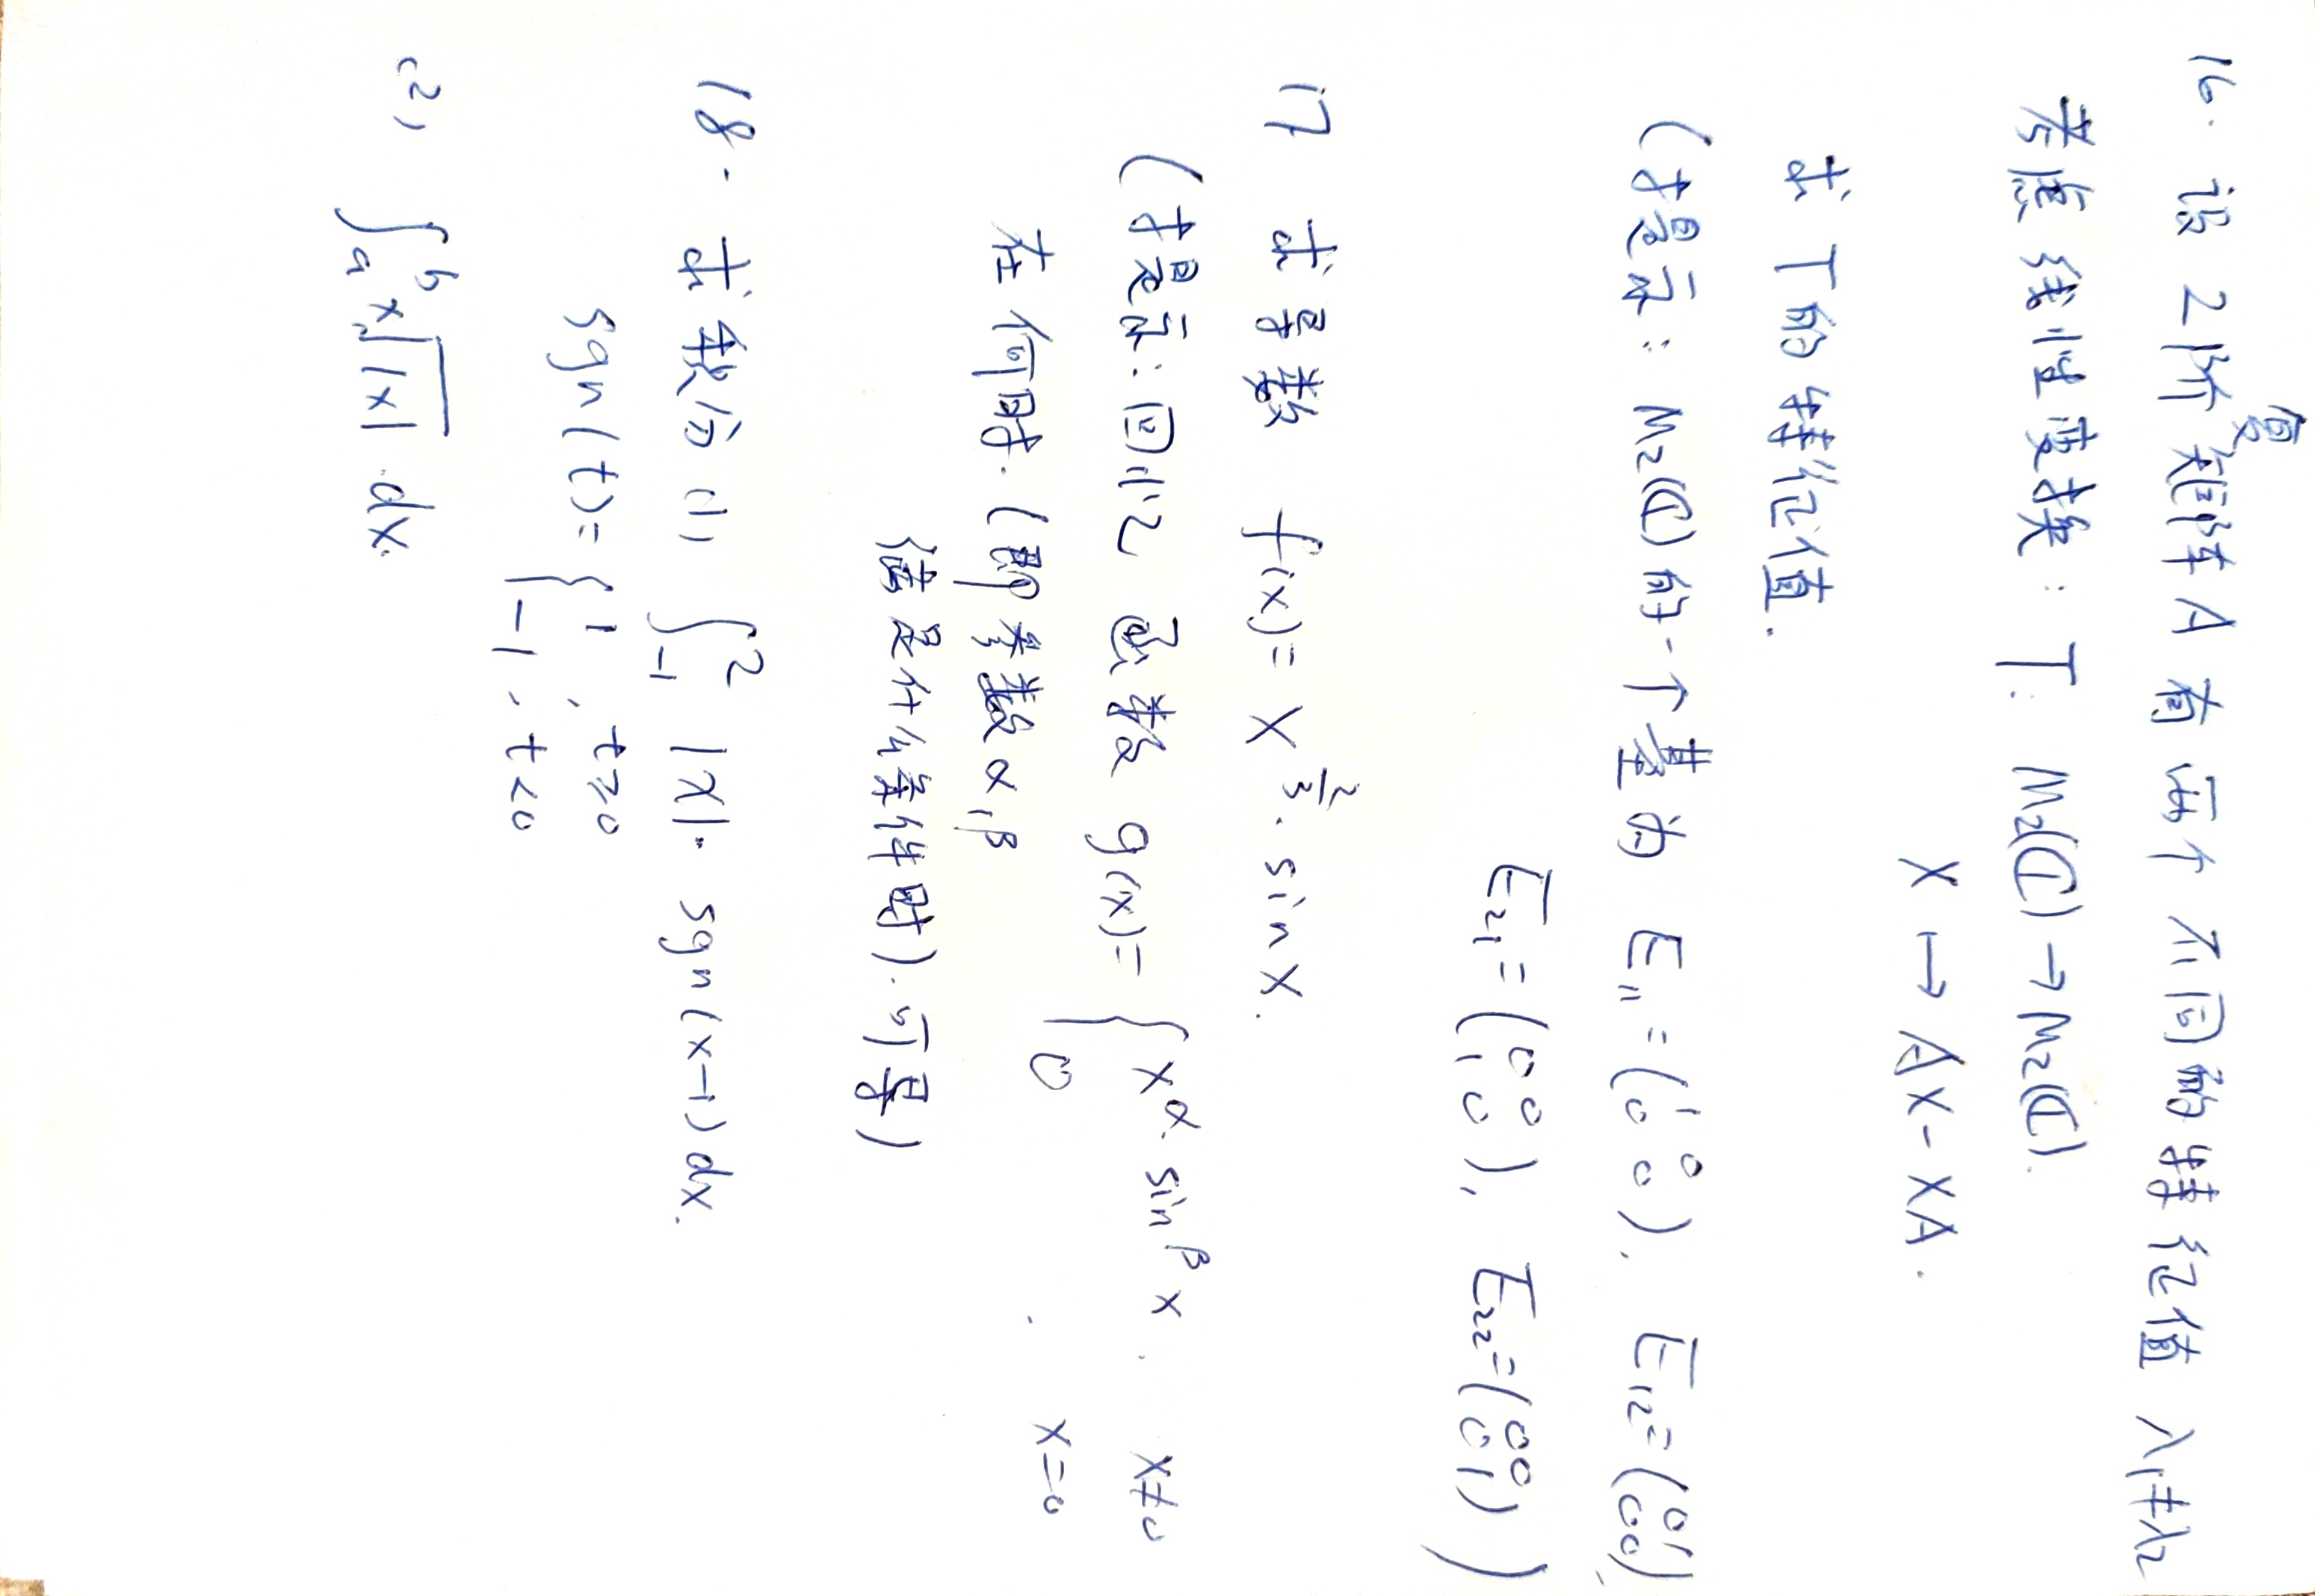 16. 设 2阶复矩阵 A 有两个不同的特征值 λ1≠λ2
考虑线性变换: T: M2(ℂ) → M2(ℂ).
X ↦ AX-XA.
求 T 的特征值.
(提示: M2(ℂ) 的一个基为 E11=(1 0 / 0 0), E12=(0 1 / 0 0)
E21=(0 0 / 1 0), E22=(0 0 / 0 1))
17 求导数 f(x)= x^{2/3}·sinx.
(提示: 回忆 函数 g(x)= { x^α·sin^β x x≠0
在何时 (即参数 α,β 0 x=0
满足什么条件时). 可导)
18. 求积分 (1) ∫_{-1}^{2} |x|·sgn(x-1)dx.
sgn(t)= { 1, t≥0
-1, t<0
(2) ∫_a^b x√|x| dx.